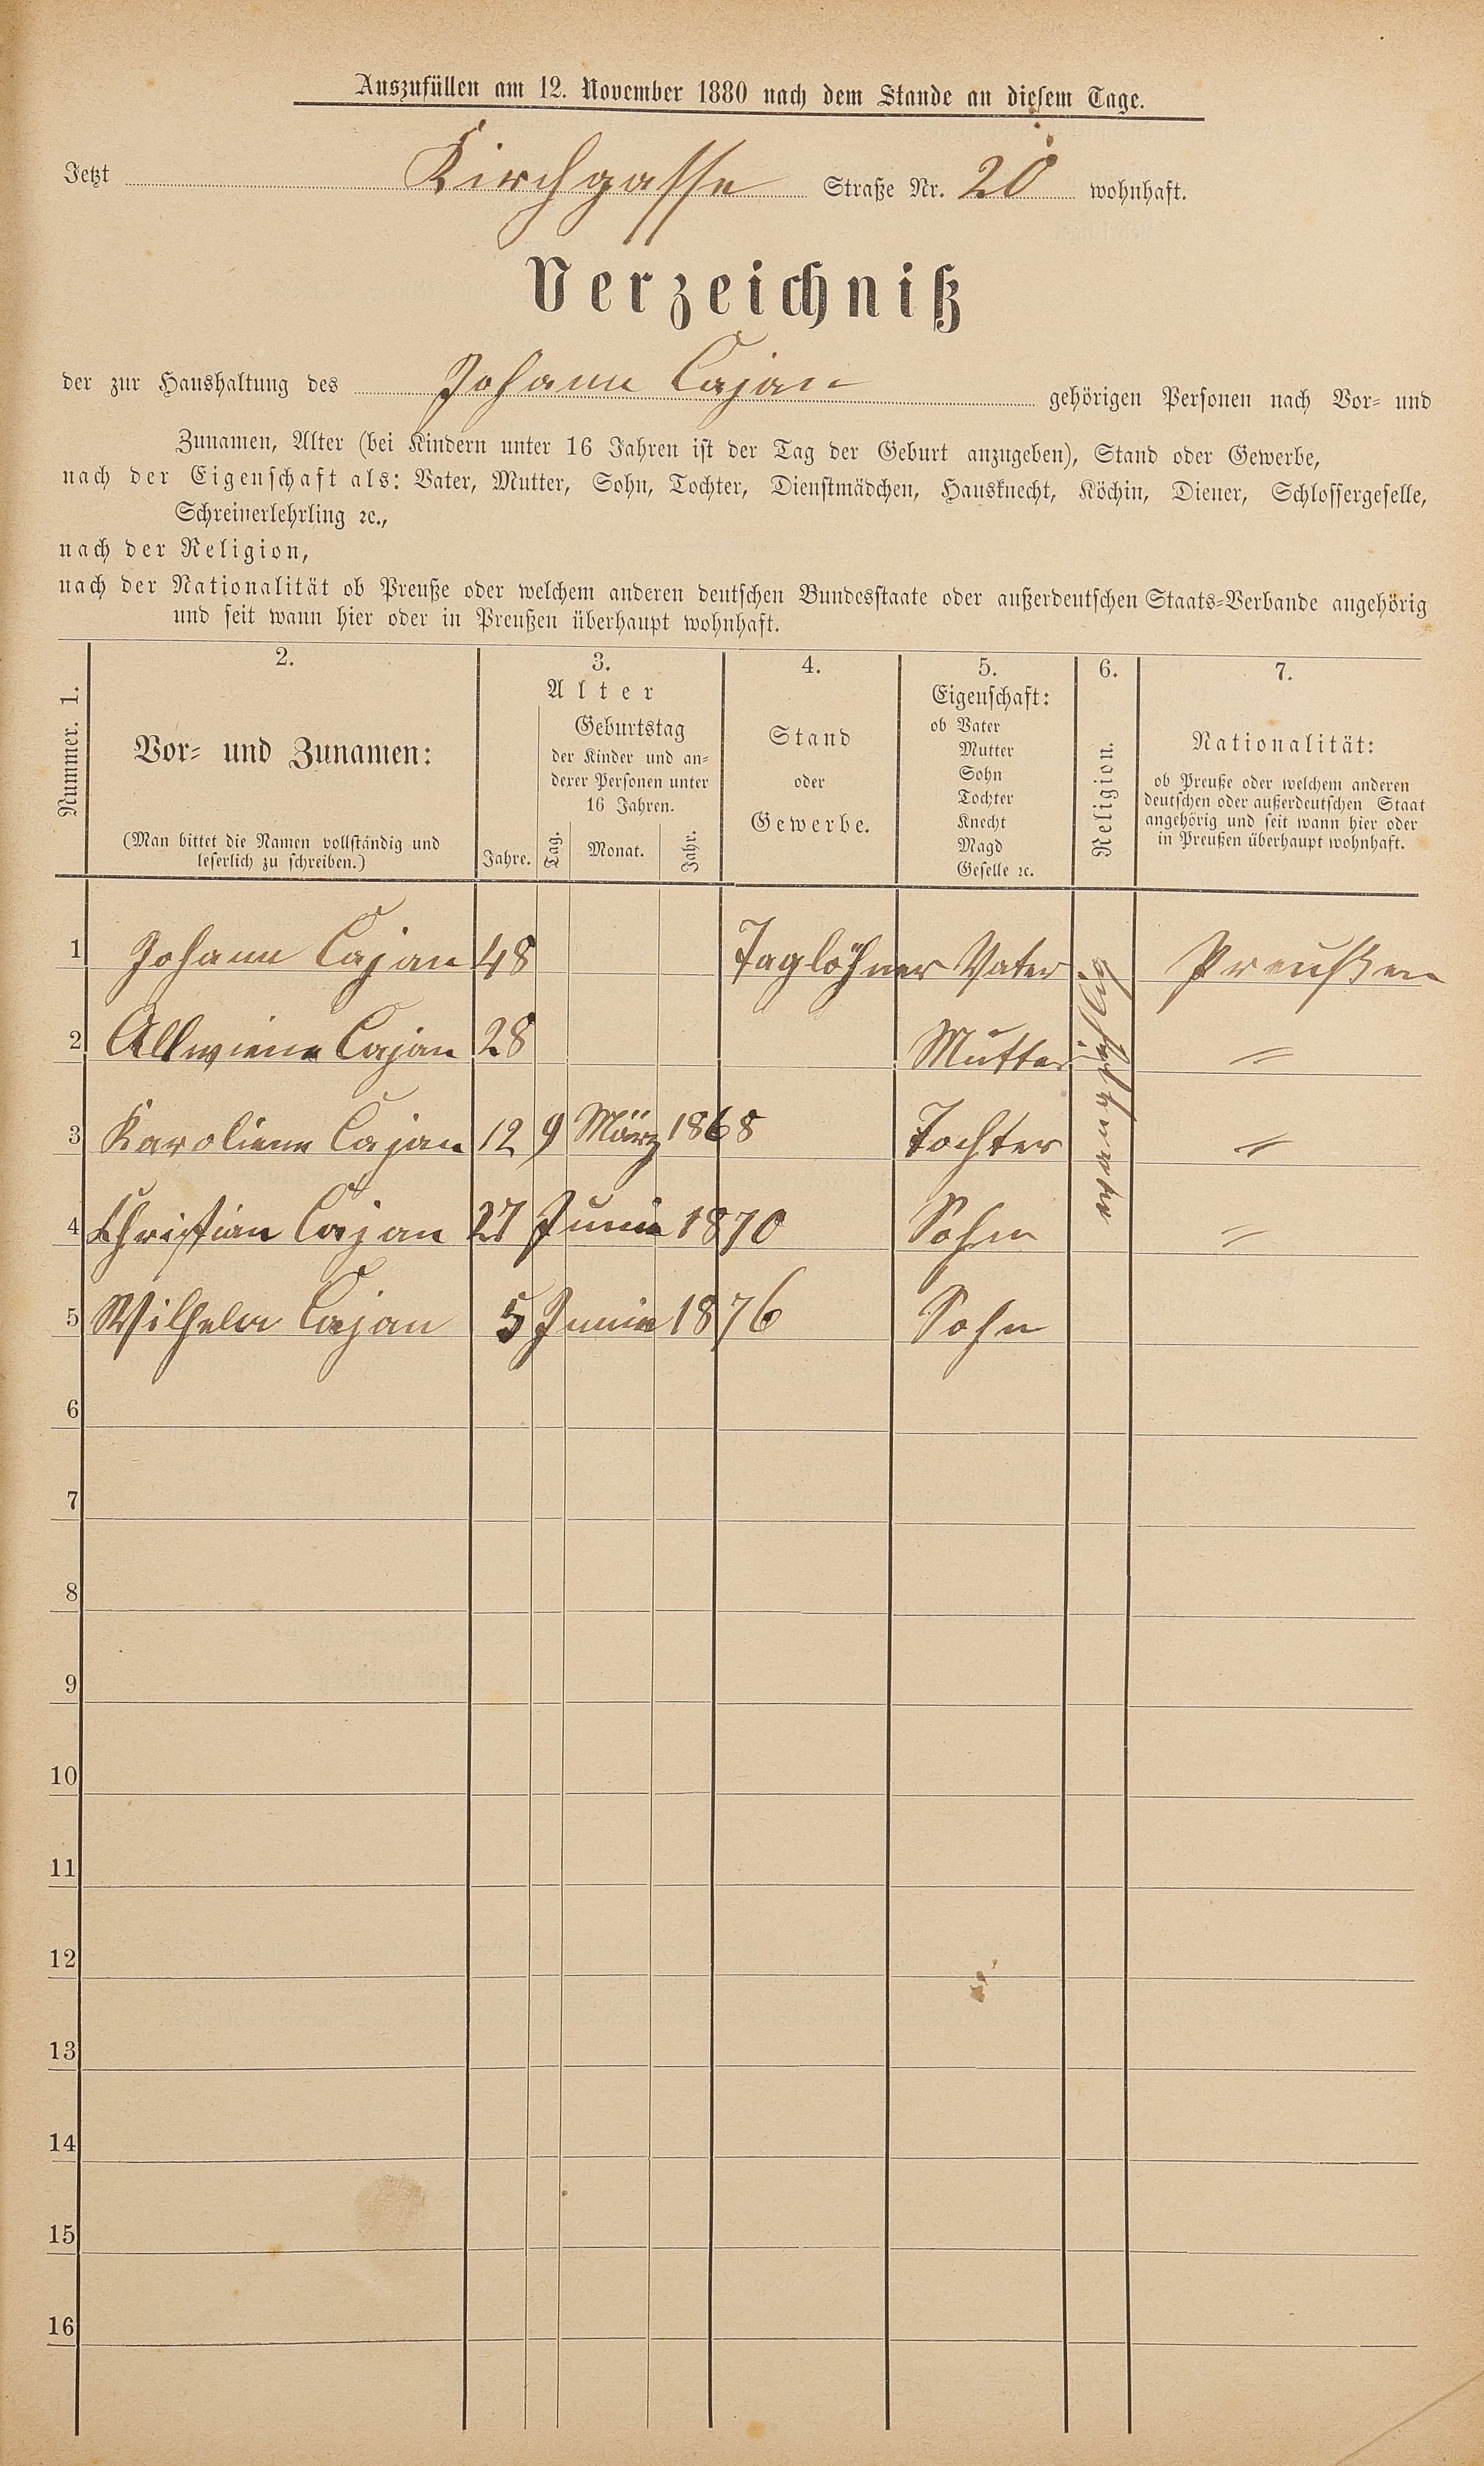 Auszufüllen am 12. November 1880 nach dem Stande an diesem Tage.
Jetzt Kirchgasse Straße Nr. 20 wohnhaft.
Verzeichniß
der zur Haushaltung des Johann Cajan gehörigen Personen nach Vor- und
Zunamen, Alter (bei Kindern unter 16 Jahren ist der Tag der Geburt anzugeben), Stand oder Gewerbe,
nach der Eigenschaft als: Vater, Mutter, Sohn, Tochter, Dienstmädchen, Hausknecht, Köchin, Diener, Schlossergeselle,
Schreinerlehrling ꝛc.,
nach der Religion,
nach der Nationalität ob Preuße oder welchem anderen deutschen Bundesstaate oder außerdeutschen Staats-Verbande angehörig
und seit wann hier oder in Preußen überhaupt wohnhaft.
Nummer. 1.
2.
Vor- und Zunamen:
(Man bittet die Namen vollständig und
leserlich zu schreiben.)
3.
Alter
Jahre.
Geburtstag
der Kinder und an-
derer Personen unter
16 Jahren.
Tag. Monat. Jahr.
4.
Stand
oder
Gewerbe.
5.
Eigenschaft:
ob Vater
Mutter
Sohn
Tochter
Knecht
Magd
Geselle ꝛc.
6.
Religion.
7.
Nationalität:
ob Preuße oder welchem anderen
deutschen oder außerdeutschen Staat
angehörig und seit wann hier oder
in Preußen überhaupt wohnhaft.
1 Johann Cajan 48 Taglöhner Vater Preußen
2 Allwiene Cajan 28 Mutter "
3 Karoliene Cajan 12 9 März 1868 Tochter "
4 Christian Cajan 27 Junie 1870 Sohn "
5 Wilhelm Cajan 5 Junie 1876 Sohn
6
7
8
9
10
11
12
13
14
15
16